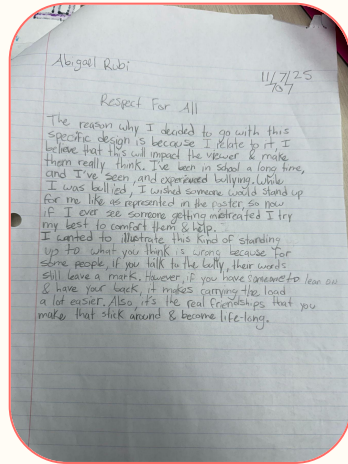 Abigail Rubi
11/7/25
Respect For All
The reason why I decided to go with this
specific design is because I relate to it, I
believe that this will impact the viewer & make
them really think. I've been in school a long time,
and I've seen, and experienced bullying. While
I was bullied, I wished someone would stand up
for me like as represented in the poster, so now
if I ever see someone getting mistreated I try
my best to comfort them & help.
I wanted to illustrate this kind of standing
up to what you think is wrong because for
some people, if you talk to the bully, their words
still leave a mark. However, if you have someone to lean on
& have your back, it makes carrying the load
a lot easier. Also, it's the real friendships that you
make that stick around & become life-long.